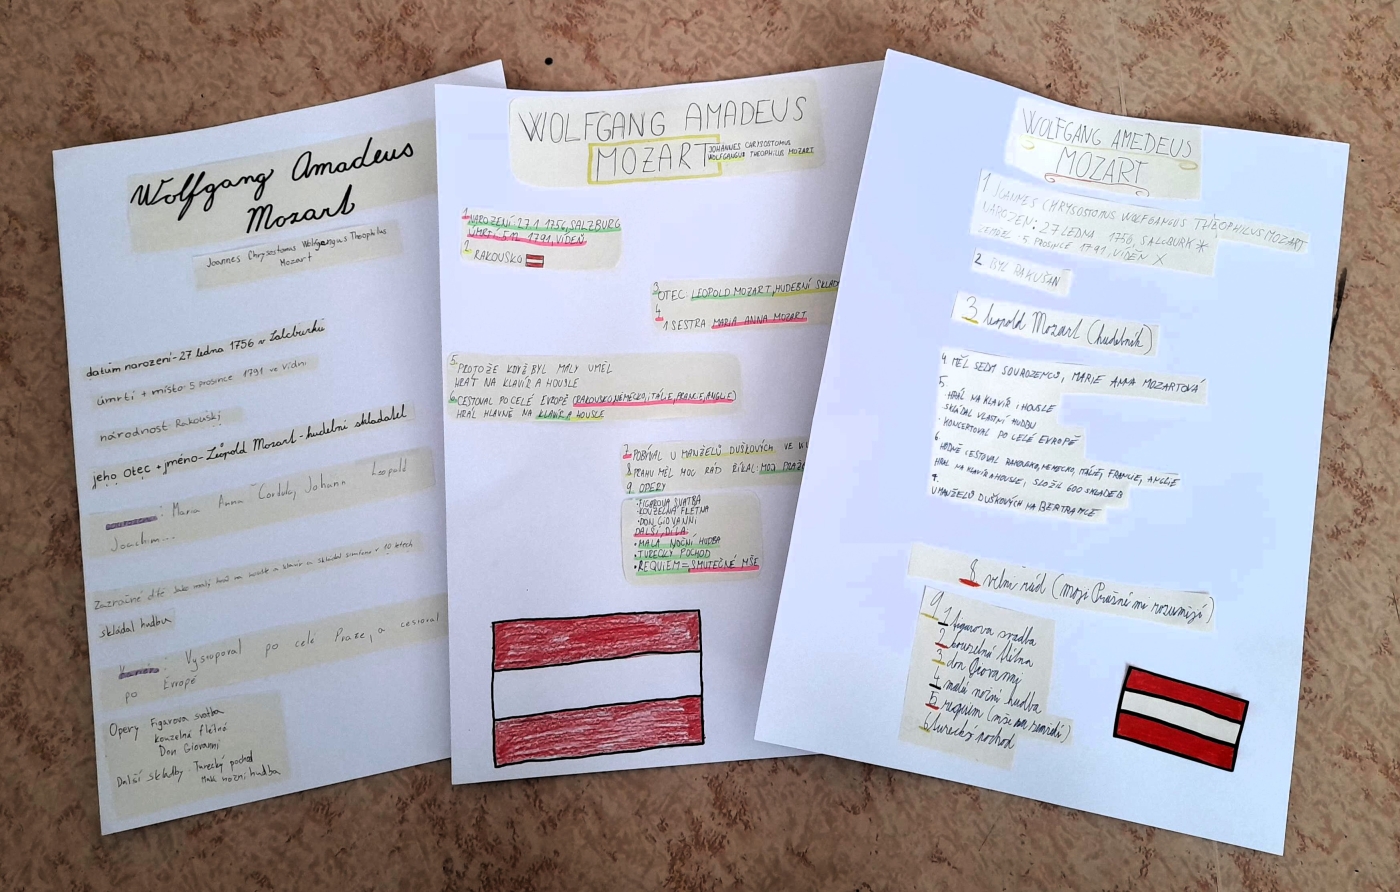 Wolfgang Amadeus
Mozart
Joannes Chrysostomus Wolfgangus Theophilus
Mozart
datum narození - 27 ledna 1756 v Zalcburku
úmrtí + místo 5 prosince 1791 ve Vídni
národnost Rakouský
jeho otec + jméno - Leopold Mozart - hudební skladatel
: Maria Anna Cordula, Johann Leopold
Joachim...
Zázračné dítě
skládal hudbu
: Vystupoval po celé Praze, a cestoval
po Evropě
Opery Figarova svatba
kouzelná flétna
Don Giovanni
Další skladby Turecký pochod
Malá noční hudba
WOLFGANG AMADEUS
MOZART
JOHANNES CHRYSOSTOMUS
WOLFGANGUS THEOPHILUS MOZART
1 NAROZENÍ: 27.1 1756, SALZBURG
ÚMRTÍ 5.12. 1791, VÍDEŇ
2 RAKOUSKO
3 OTEC: LEOPOLD MOZART, HUDEBNÍ SKLAD
4
1 SESTRA MARIA ANNA MOZART
5 PROTOŽE KDYŽ BYL MALÝ UMĚL
HRÁT NA KLAVÍR A HOUSLE
6 CESTOVAL PO CELÉ EVROPĚ (RAKOUSKO, NĚMECKO, ITÁLIE, FRANCIE, ANGLIE)
HRÁL HLAVNĚ NA KLAVÍR A HOUSLE
7 POBÝVAL U MANŽELŮ DUŠKOVÝCH VE V
8 PRAHU MĚL MOC RÁD ŘÍKAL: MOJI PRAŽA
9. OPERY
• FIGAROVA SVATBA
• KOUZELNÁ FLÉTNA
• DON GIOVANNI
DALŠÍ DÍLA
• MALÁ NOČNÍ HUDBA
• TURECKÝ POCHOD
• REQUIEM = SMUTEČNÉ MŠE
WOLFGANG AMEDEUS
MOZART
1 JOANNES CHRYSOSTOMUS WOLFGANGUS THEOPHILUS MOZART
NAROZEN: 27 LEDNA 1756, SALCBURK *
ZEMŘEL 5 PROSINCE 1791, VÍDEŇ X
2 BYL RAKUŠAN
3 leopold Mozart (hudebník)
4 MĚL SEDM SOUROZENCŮ, MARIE ANNA MOZARTOVÁ
5
• HRÁL NA KLAVÍR I HOUSLE
• SKLÁDAL VLASTNÍ HUDBU
• KONCERTOVAL PO CELÉ EVROPĚ
6
HODNĚ CESTOVAL RAKOUSKO, NĚMECKO, ITÁLIE, FRANCIE, ANGLIE
HRÁL NA KLAVÍR A HOUSLE, SLOŽIL 600 SKLADEB
7.
U MANŽELŮ DUŠKOVÝCH NA BERTRAMCE
8 velmi rád (moji Pražané mi rozumějí)
9 1 figarova svadba
2 kouzelná flétna
3 don Geovanny
4 malá noční hudba
5 requiem
6 turecký pochod